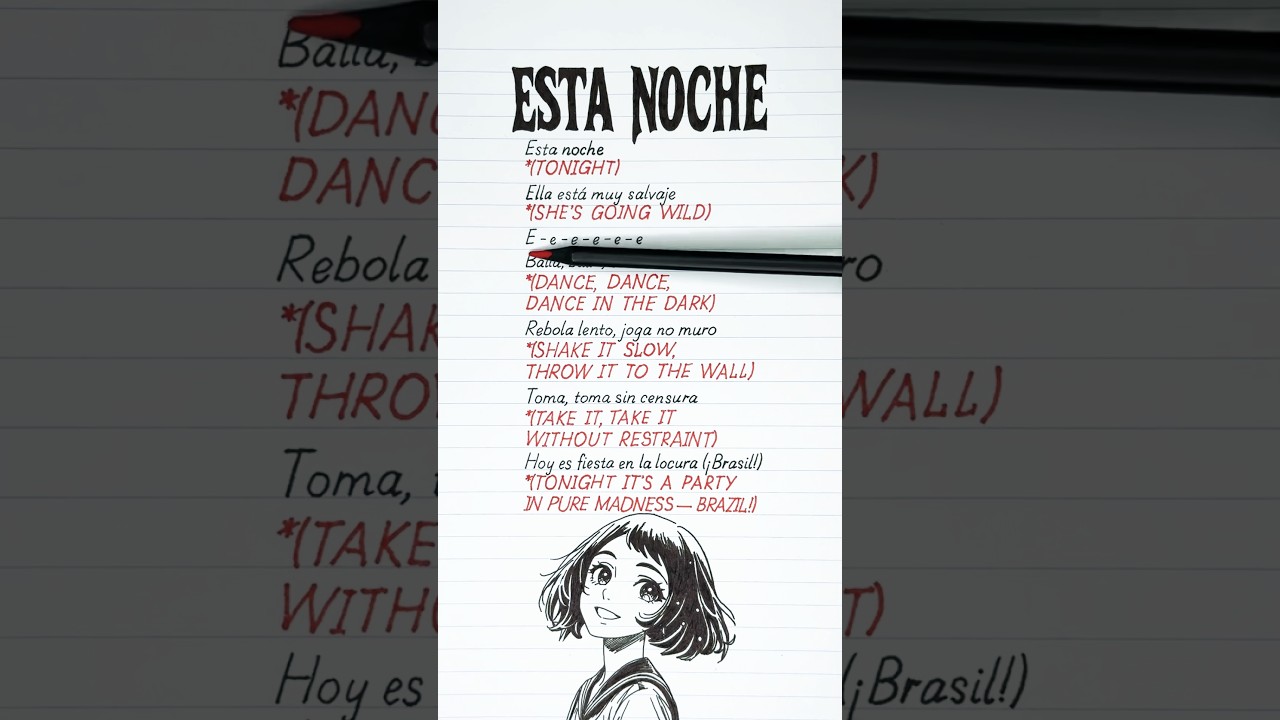 ESTA NOCHE
Esta noche
*(TONIGHT)
Ella está muy salvaje
*(SHE'S GOING WILD)
E-e-e-e-e-e
Baila,
*(DANCE, DANCE,
DANCE IN THE DARK)
Rebola lento, joga no muro
*(SHAKE IT SLOW,
THROW IT TO THE WALL)
Toma, toma sin censura
*(TAKE IT, TAKE IT
WITHOUT RESTRAINT)
Hoy es fiesta en la locura (¡Brasil!)
*(TONIGHT IT'S A PARTY
IN PURE MADNESS—BRAZIL!)